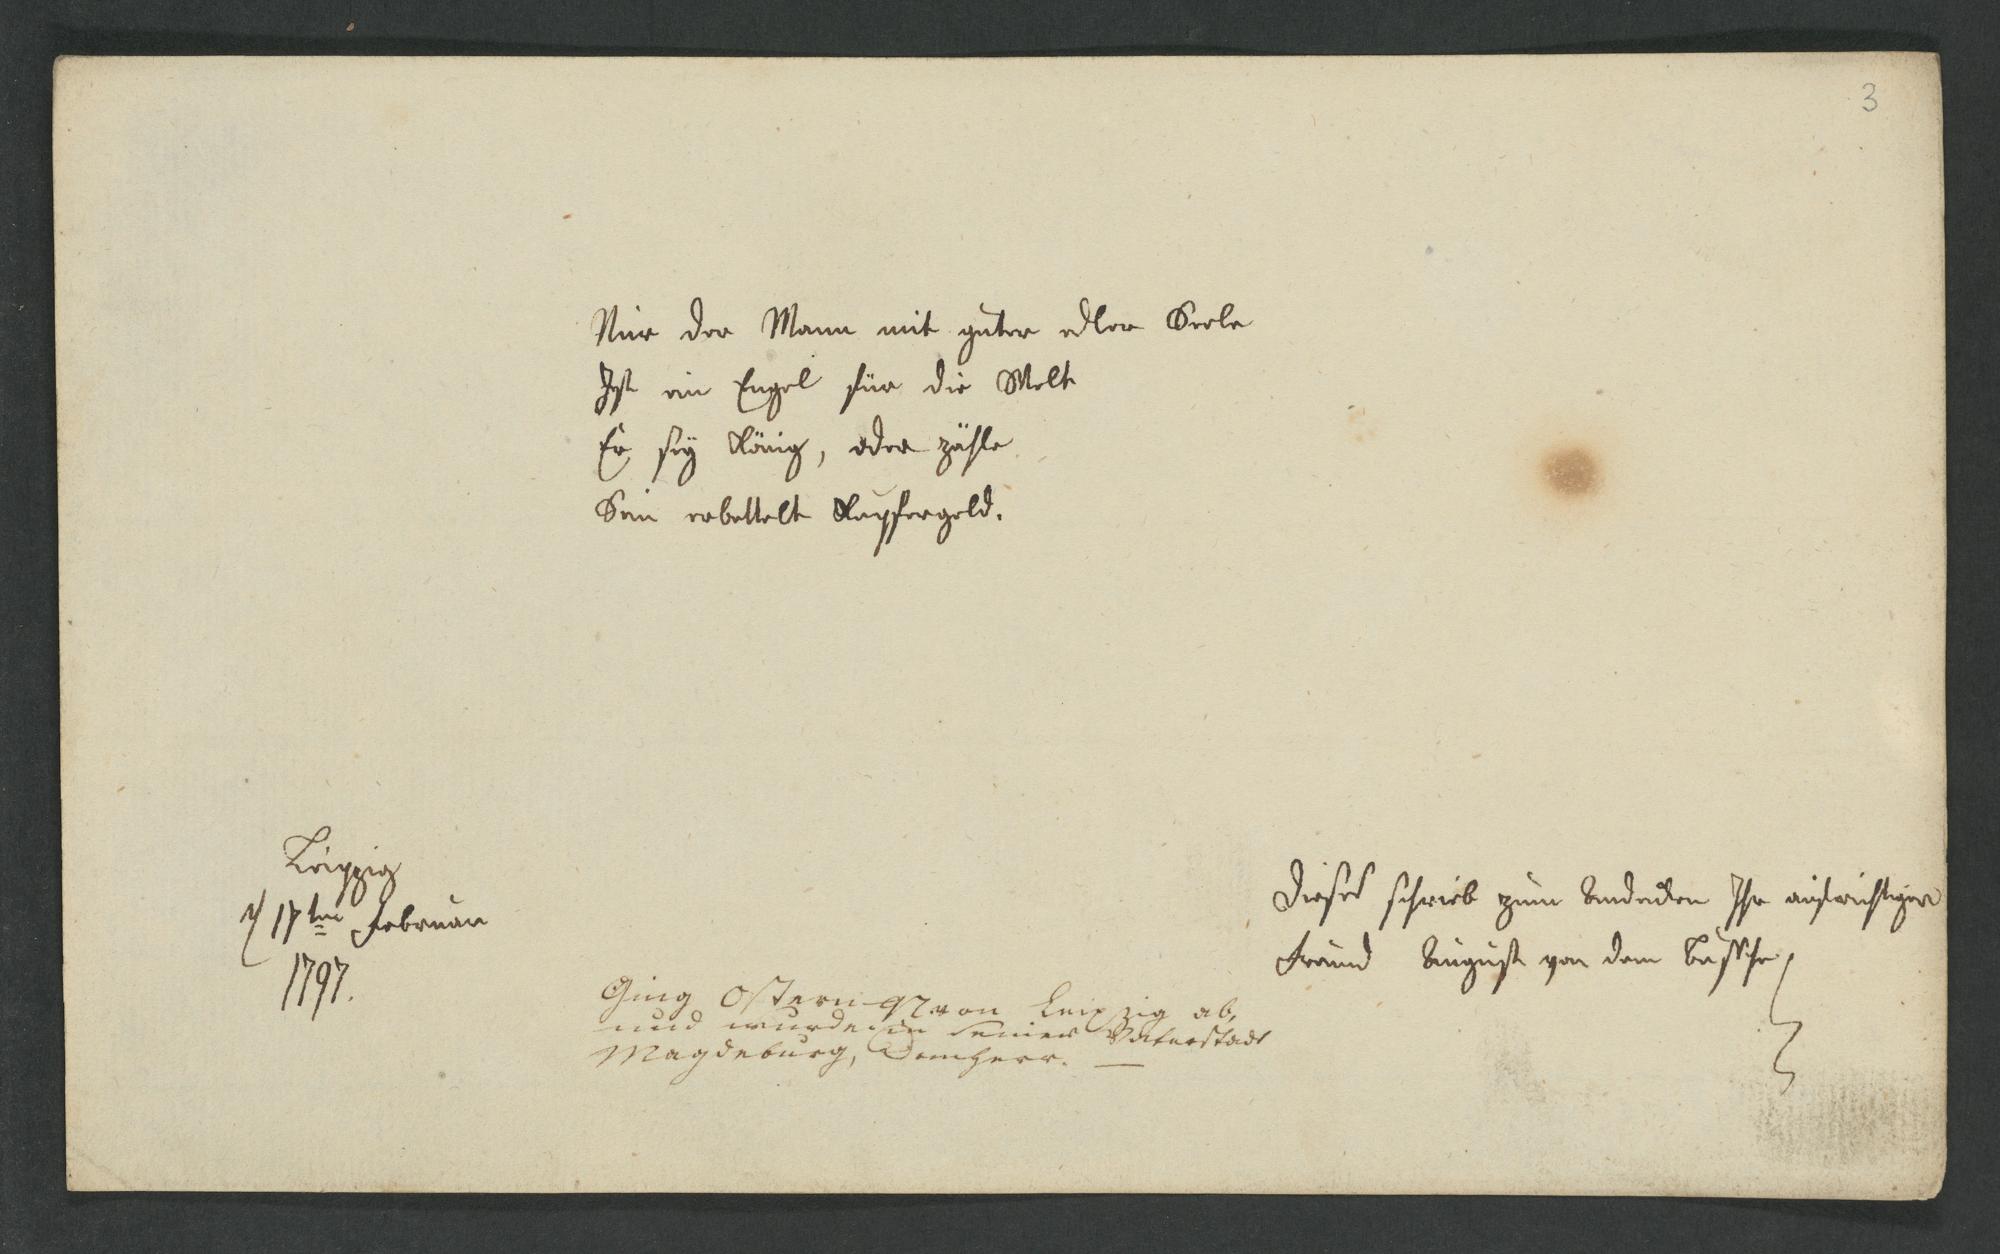 3
Nur der Mann mit guter edler Seele
Ist ein Engel für die Welt
Er sey König, oder zähle
Sein erbettelt Kupfergeld.
Leipzig
17ten Februar
1797.
Dieses schrieb zum Andenken Ihr aufrichtiger
Freund August von dem Bussche
Ging Ostern 97 von Leipzig ab,
und wurde in seiner Vaterstadt
Magdeburg, Domherr. —